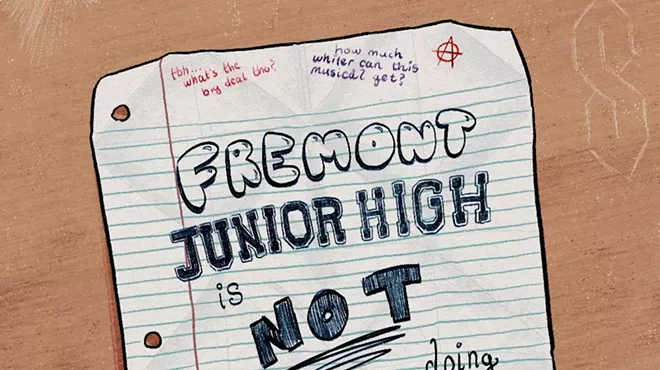 tbh...
what's the
big deal tho?
how much
whiter can this
musical get?
FREMONT
JUNIOR HIGH
is
NOT
doing